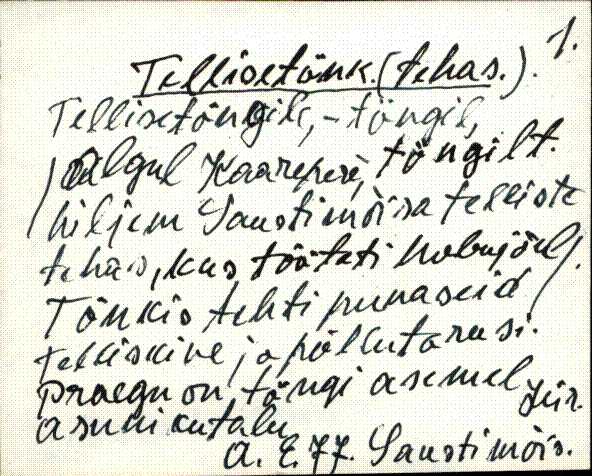 1.
Tellisetönk. (tehas.).
Tellisetöngile, - töngil,
(Algul Kaarepere, töngilt.
hiljem Saustimõisa telliste
tehas, kus töötati hobujõul).
Tönkis tehti punaseid
telliskive ja põllutorusi.
Praegu on töngi asemel
asunikutalu Jür.
A. E. 77. Saustimõis.